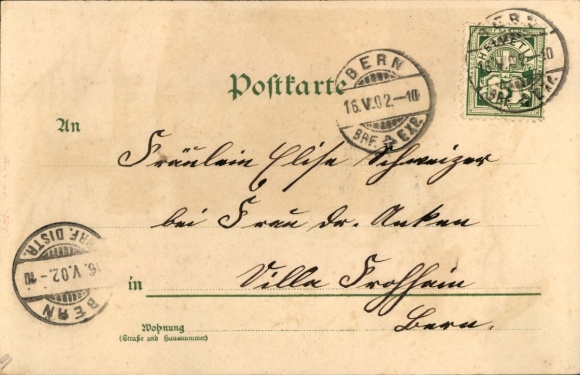 BERN
HELVETIA
5
Postkarte
BERN
16.V.02.-10
BRF. EXP.
An
Fräulein Elise Schweizer
bei Frau Dr. Anken
in Villa Frohheim
Bern.
BRF. DISTR.
16.V.02.-10
BERN
Wohnung
(Straße und Hausnummer)